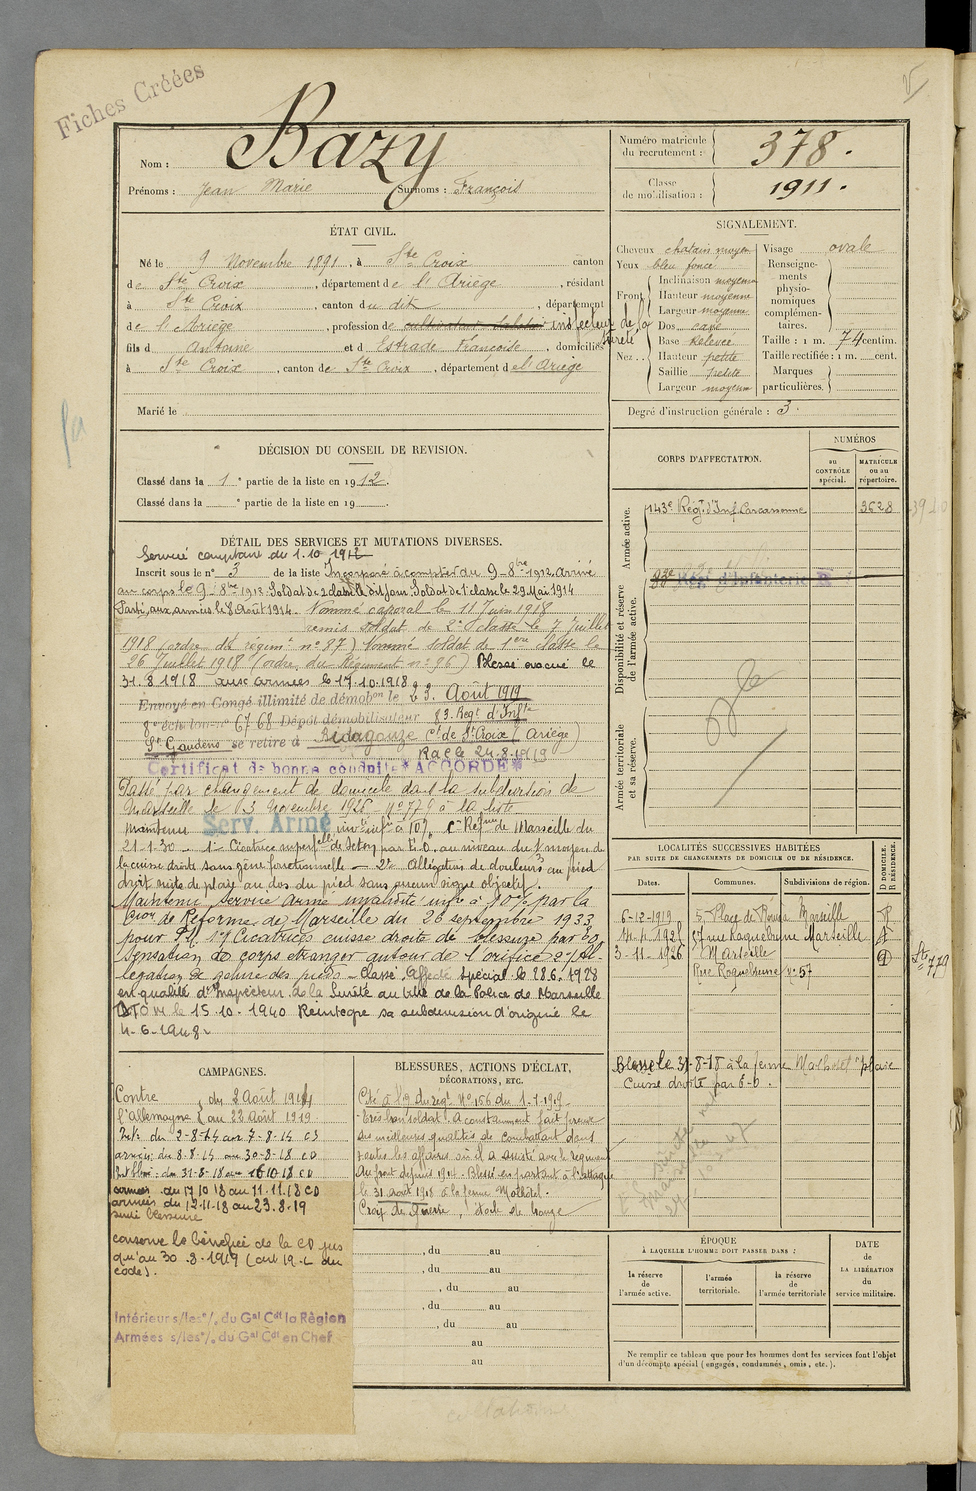 Fiches Créées
Nom : Bazy
Prénoms : Jean Marie Surnoms : François
Numéro matricule du recrutement : 378.
Classe de mobilisation : 1911.
ÉTAT CIVIL.
Né le 9 Novembre 1891, à Ste Croix canton
de Ste Croix, département de l'Ariège, résidant
à Ste Croix, canton du dit, département
de l'Ariège, profession de cultivateur inspecteur de la Sûreté
fils d Antoine et d Estrade Françoise, domiciliés
à Ste Croix, canton de Ste Croix, département de l'Ariège
Marié le
SIGNALEMENT.
Cheveux chatain moyen
Yeux bleu foncé
Front Inclinaison moyenne
Hauteur moyenne
Largeur moyenne
Nez Dos cavé
Base Relevée
Hauteur petite
Saillie petite
Largeur moyenne
Visage ovale
Renseignements physionomiques complémentaires.
Taille : 1 m. 74 centim.
Taille rectifiée : 1 m. cent.
Marques particulières.
Degré d'instruction générale : 3.
DÉCISION DU CONSEIL DE REVISION.
Classé dans la 1e partie de la liste en 1912.
Classé dans la e partie de la liste en 19
CORPS D'AFFECTATION.
NUMÉROS
au CONTRÔLE spécial.
MATRICULE ou au répertoire.
Armée active.
143e Régt d'Inf Carcassonne 3628
Disponibilité et réserve de l'armée active.
Régt d'Infanterie
Armée territoriale et sa réserve.
DÉTAIL DES SERVICES ET MUTATIONS DIVERSES.
Service comptant du 1.10 1912
Inscrit sous le n° 3 de la liste Incorporé à compter du 9-8bre 1912. Arrivé
au corps le 9-8bre 1912. Soldat de 2e classe dit jour. Soldat de 1e classe le 29 Mai 1914
Parti aux armées le 8 Août 1914. Nommé caporal le 11 Juin 1918
remis soldat de 2e classe le 7 Juillet
1918 (ordre du régimt n° 87) Nommé soldat de 1ère classe le
26 Juillet 1918 (ordre du Régiment n° 96) Blessé évacué le
31.8 1918 aux armées le 17.10.1918
Envoyé en Congé illimité de démobon le 23 Août 1919
8e échelon n° 6768 Dépôt démobilisateur 83. Regt d'Infie
St Gaudens se retire à Bédagouze Ct de St Croix (Ariège)
Rac le 24.8.1919
Certificat de bonne conduite "ACCORDÉ"
Passé par changement de domicile dans la subdivision de
Marseille le 3 Novembre 1926 n° 779 à la liste
Maintenu Serv. Armé invté infre à 10% Con Réforme de Marseille du
21-1-30 - 1° Cicatrice superfelle de Séton par E.O. au niveau du 1/3 moyen de
la cuisse droite sans gêne fonctionnelle - 2° Allégation de douleurs au pied
droit suite de plaie au dos du pied sans aucun signe objectif.
Maintenu service armé invalidité infre à 10% par la
Con de Réforme de Marseille du 26 septembre 1933
pour 1° Cicatrices cuisse droite de blessure par E.O.
sensation de corps étranger autour de l'orifice 2° Al-
légation de gelure des pieds - Classé Affecté spécial le 28.6.1928
en qualité d'Inspecteur de la Sureté au titre de la Police de Marseille
le 15.10.1940 Réintegre sa subdivision d'origine le
4-6-1948
LOCALITÉS SUCCESSIVES HABITÉES
PAR SUITE DE CHANGEMENTS DE DOMICILE OU DE RÉSIDENCE.
Dates. Communes. Subdivisions de région. D DOMICILE. R RÉSIDENCE.
6-12-1919 5, Place de Rome Marseille R
57 rue Roquebrune Marseille
3-11-1926 Marseille D
Rue Roquebrune n° 57
Ste 779
Blessé le 31-8-18 à la ferme plaie
Cuisse droite par E-O.
CAMPAGNES.
Contre l'Allemagne du 2 Août 1914 au 23 Août 1919
Int. du 2-8-14 au 7-8-14 CS
armées du 8-8-14 au 30-8-18 CD
Int blessé du 31-8-18 au 16 10-18 CD
armées du 17 10 18 au 11.11.18 CD
armées du 12.11.18 au 23.8.19
suite blessure
conserve le bénéfice de la CD jus
qu'au 30 8.1919 (art 19.L du
code).
Intérieur s/les°/, du Gal Cdt la Région
Armées s/les°/, du Gal Cdt en Chef
BLESSURES, ACTIONS D'ÉCLAT,
DÉCORATIONS, ETC.
Cité à l'O du régt N° 156 du 1-1-1919
Très bon soldat. A constamment fait preuve
des meilleures qualités de combattant dans
toutes les affaires où il a assisté avec le régiment
Au front depuis 1914. Blessé en partant à l'attaque
le 31 août 1918 à la ferme
Croix de guerre, étoile de bronze
, du au
, du au
, du au
, du au
, du au
au
au
ÉPOQUE
À LAQUELLE L'HOMME DOIT PASSER DANS :
la réserve de l'armée active.
l'armée territoriale.
la réserve de l'armée territoriale
DATE DE LA LIBÉRATION du service militaire.
Ne remplir ce tableau que pour les hommes dont les services font l'objet
d'un décompte spécial (engagés, condamnés, omis, etc.).